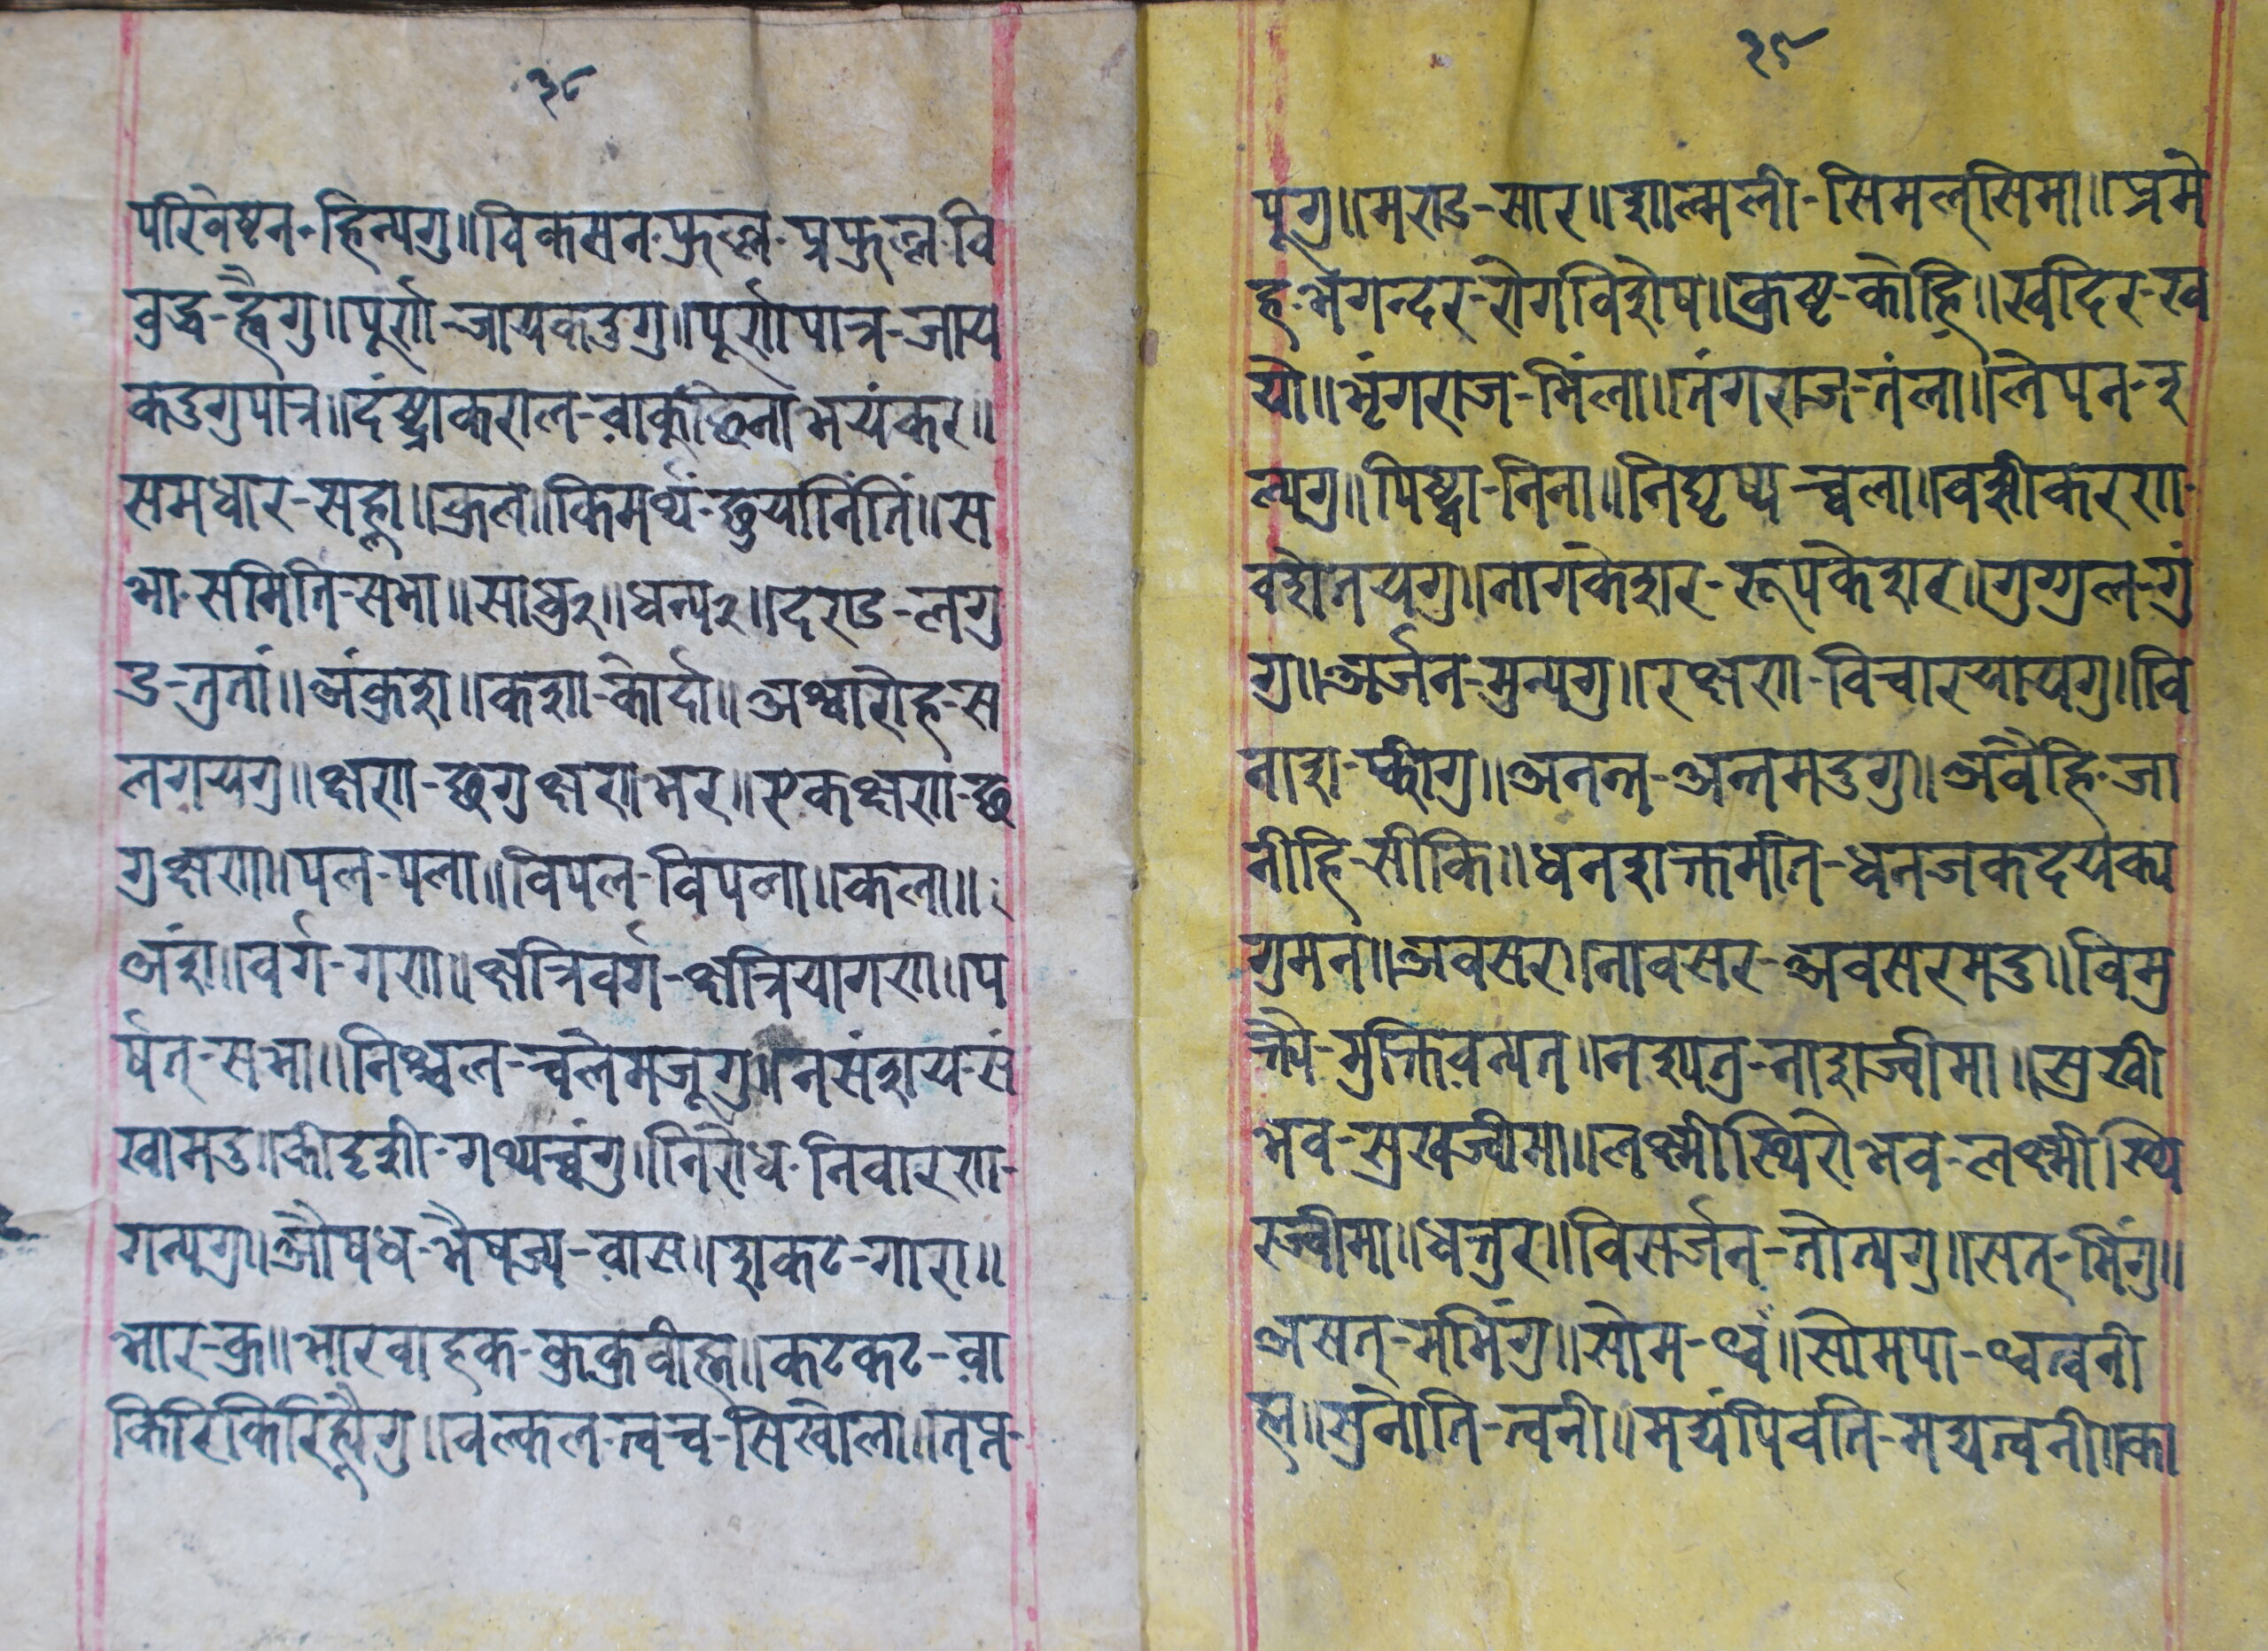 ३८
परिवेष्टन-हिन्यगु॥विकसन-फुल्ल-प्रफुल्ल-वि
वुद्ध-ह्वैगु॥पूर्ण-जायकदुगु॥पूर्णपात्र-जाय
कदुगुपात्र॥दंष्ट्राकराल-वाकुछिनाभयंकर॥
समधार-सह्लु॥कुल॥किमर्थं-छुयानिंतिं॥स
भा-समिति-सभा॥साधु२॥धन्य२॥दण्ड-लगु
ड-तुतां॥अंकुश॥कशा-कोर्दा॥अश्वारोह-स
लगयगु॥क्षण-छगुक्षणभर॥एकक्षण-छ
गुक्षण॥पल-पला॥विपल-विपला॥कला॥
अंश॥वर्ग-गण॥क्षत्रिवर्ग-क्षत्रियागण॥प
र्षत्-सभा॥निश्चल-चलेमजूगु॥नसंशय-सं
खामदु॥कीदृशी-गथ्यच्वंगु॥निरोध-निवारण-
गन्यगु॥औषध-भैषज्य-वास॥शकट-गारा॥
भार-कु॥भारवाहक-कुकुवीह्म॥कटकट-वा
किरिकिरिह्यूगु॥वल्कल-त्वच-सिखोला॥तप्त-
३९
पूगु॥मण्ड-सार॥शाल्मली-सिमल्सिमा॥प्रमे
ह-भगन्दर-रोगविशेष॥कुष्ट-कोहि॥खदिर-ख
यो॥भृंगराज-भिंला॥तंगराज-तंला॥लेपन-इ
ल्यगु॥पिष्ट्वा-निना॥निघृष्य-च्वला॥वशीकरण-
वशेतयगु॥नागकेशर-रूपकेशर॥गुग्गुल-गुं
गु॥अर्जन-मुन्यगु॥रक्षण-विचारयायगु॥वि
नाश-फ्वीगु॥अनन्त-अन्तमदुगु॥अवैहि-जा
नीहि-सीकि॥धनशक्तामति-धनजकदयेक्य
गुमनं॥अवसर॥नावसर-अवसरमदु॥विमु
क्त्यै-मुक्तिवन्यत॥नश्यतु-नाशज्वीमा॥सुखी
भव-सुखज्वीमा॥लक्ष्मीस्थिरोभव-लक्ष्मीस्थि
रज्वीमा॥धत्तुर॥विसर्जन-तोत्यगु॥सत्-भिंगु॥
असत्-मभिंगु॥सोम-थ्वँ॥सोमपा-थ्वत्वनी
ह्म॥सुनोति-त्वनी॥मद्यंपिवति-मद्यत्वनी॥का